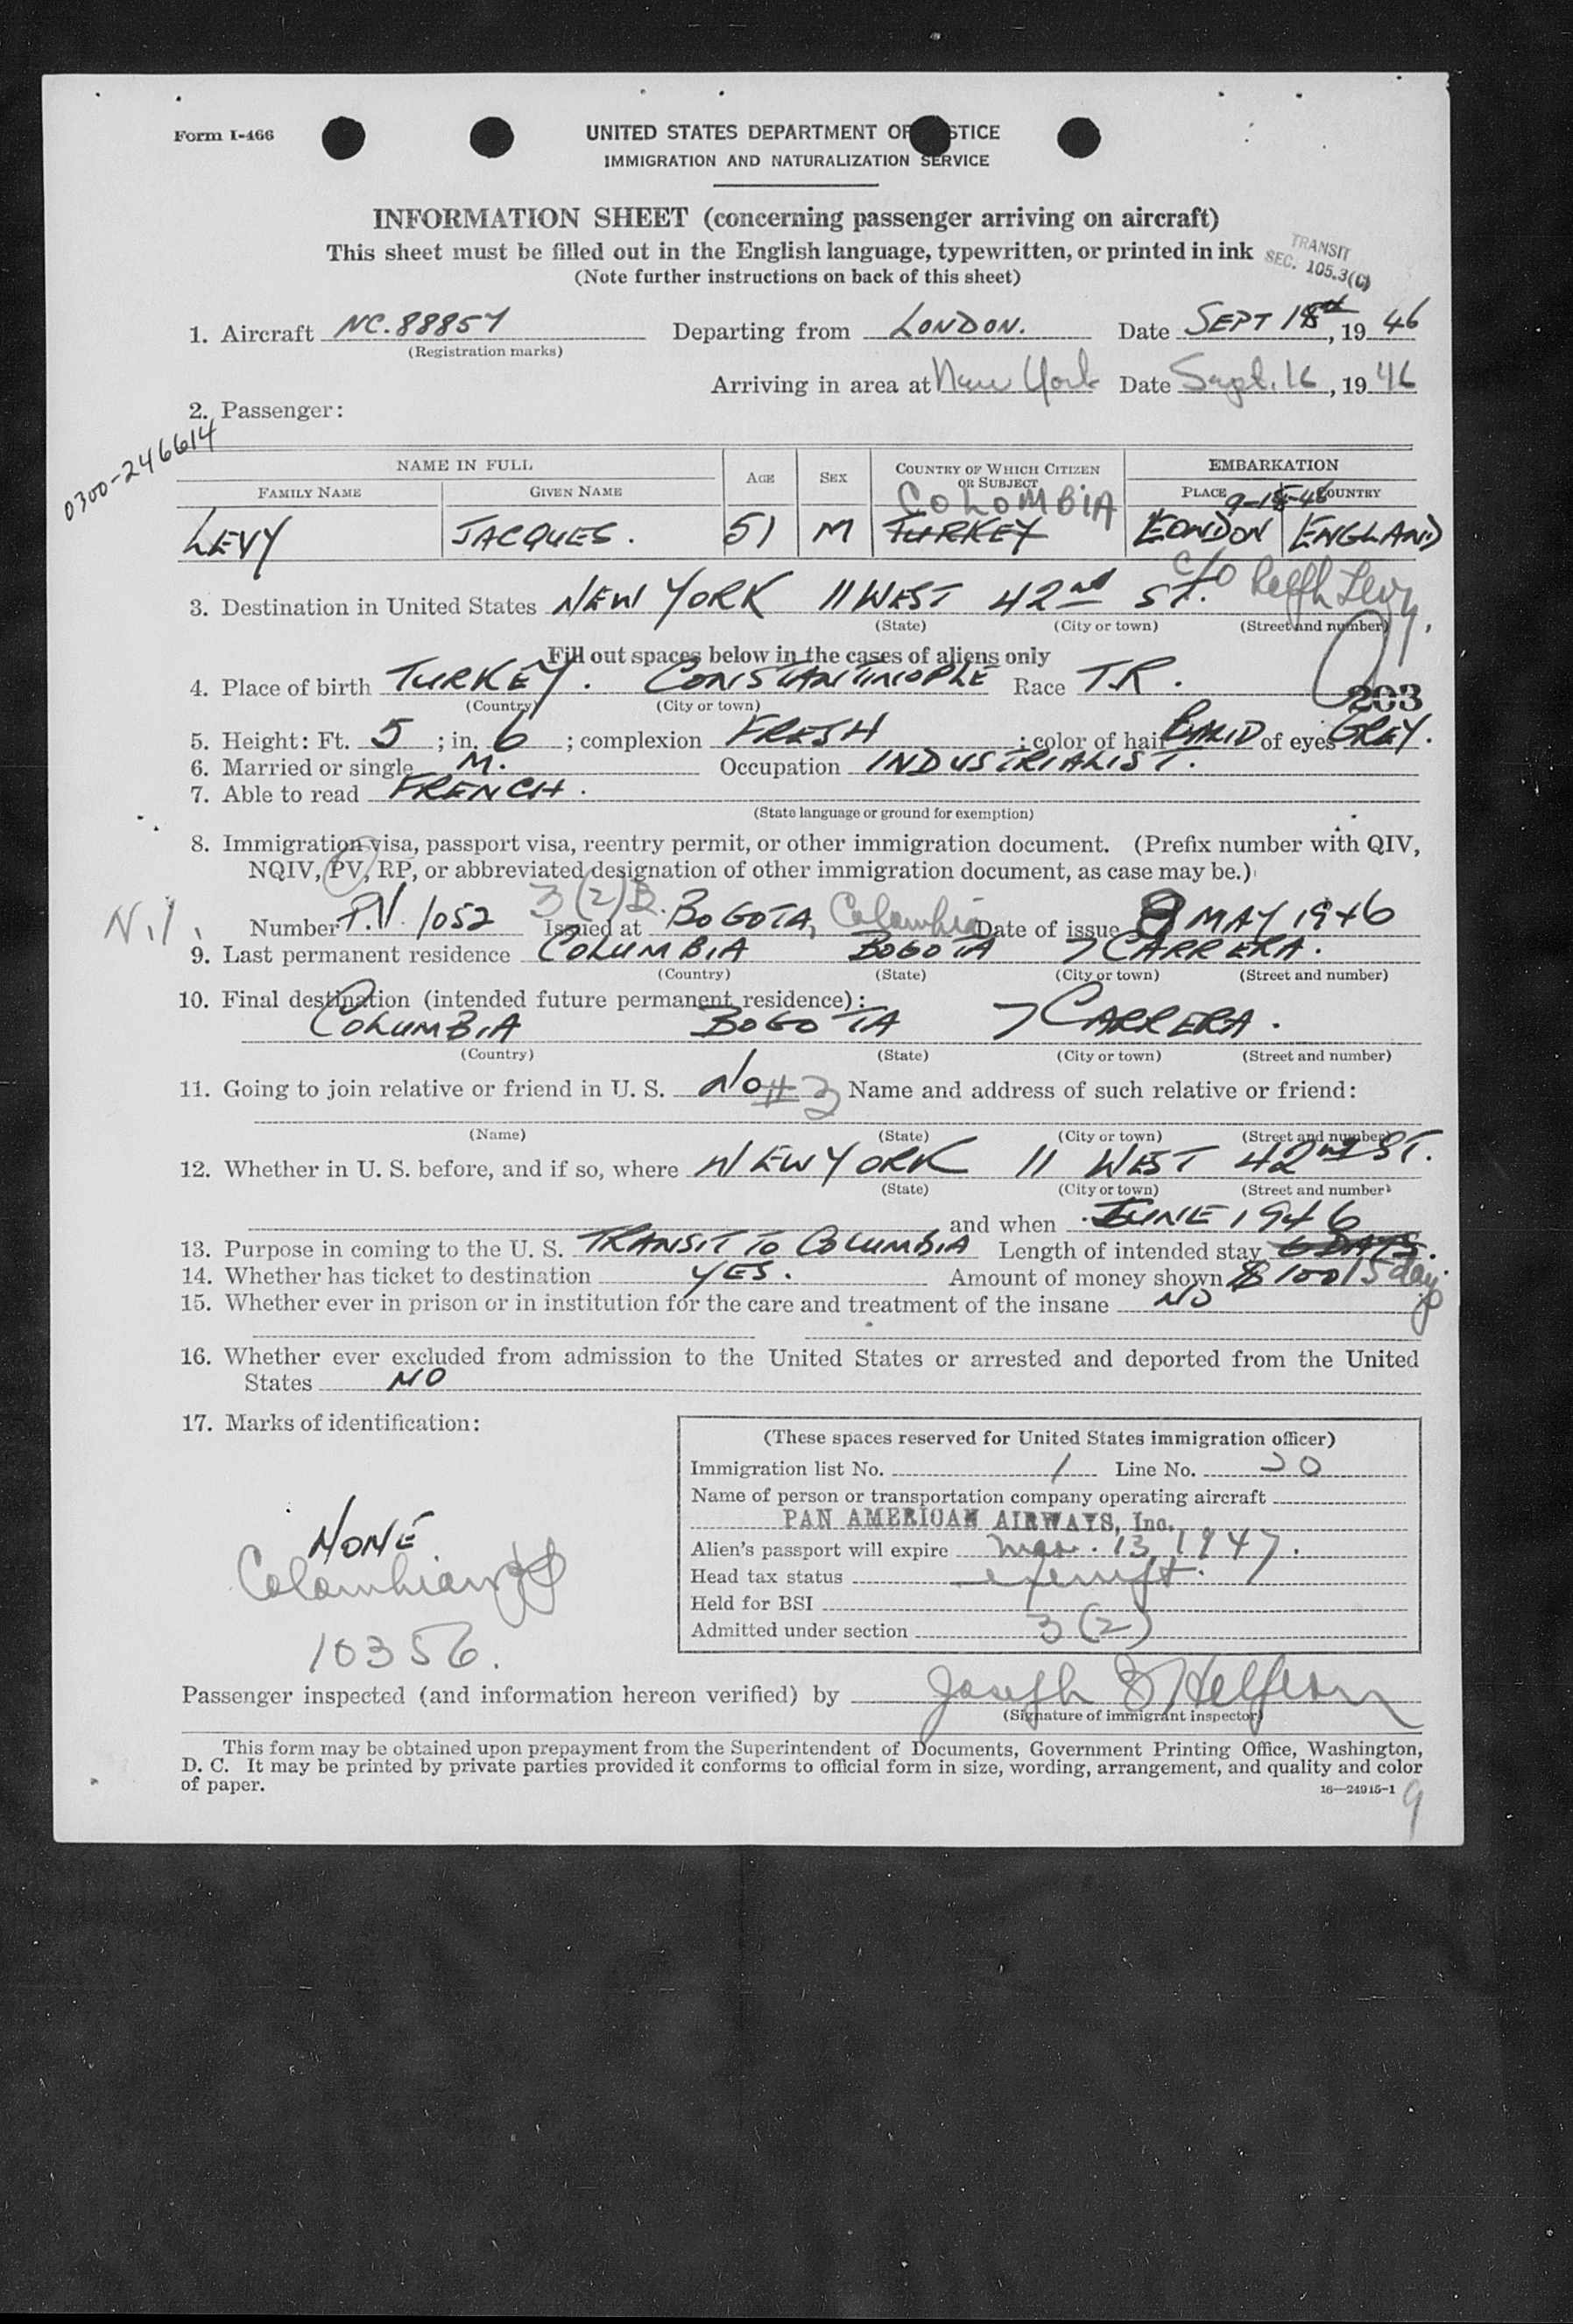 Form I-466
UNITED STATES DEPARTMENT OF JUSTICE
IMMIGRATION AND NATURALIZATION SERVICE
INFORMATION SHEET (concerning passenger arriving on aircraft)
This sheet must be filled out in the English language, typewritten, or printed in ink
TRANSIT
SEC. 105.3(C)
(Note further instructions on back of this sheet)
1. Aircraft NC.88857 Departing from LONDON. Date SEPT 15th, 19 46
(Registration marks)
Arriving in area at New York Date Sept. 16, 19 46
2. Passenger:
0300-246614
NAME IN FULL AGE SEX COUNTRY OF WHICH CITIZEN OR SUBJECT EMBARKATION
FAMILY NAME GIVEN NAME PLACE COUNTRY
COLOMBIA 9-15-46
LEVY JACQUES. 51 M TURKEY LONDON ENGLAND
3. Destination in United States NEW YORK 11 WEST 42nd ST. c/o Levy
(State) (City or town) (Street and number)
Fill out spaces below in the cases of aliens only
4. Place of birth TURKEY. CONSTANTINOPLE Race T.R.
(Country) (City or town) 203
5. Height: Ft. 5; in. 6; complexion FRESH; color of hair BALD of eyes GREY.
6. Married or single M. Occupation INDUSTRIALIST.
7. Able to read FRENCH.
(State language or ground for exemption)
8. Immigration visa, passport visa, reentry permit, or other immigration document. (Prefix number with QIV,
NQIV, PV, RP, or abbreviated designation of other immigration document, as case may be.)
Nil. Number P.V. 1052 3(2)B. Issued at BOGOTA, Colombia Date of issue 8 MAY 1946
9. Last permanent residence COLUMBIA BOGOTA 7 CARRERA.
(Country) (State) (City or town) (Street and number)
10. Final destination (intended future permanent residence):
COLUMBIA BOGOTA 7 CARRERA.
(Country) (State) (City or town) (Street and number)
11. Going to join relative or friend in U. S. No #3 Name and address of such relative or friend:
(Name) (State) (City or town) (Street and number)
12. Whether in U. S. before, and if so, where NEW YORK 11 WEST 42nd ST.
(State) (City or town) (Street and number)
and when JUNE 1946
13. Purpose in coming to the U. S. TRANSIT TO COLUMBIA Length of intended stay 6 DAYS.
14. Whether has ticket to destination YES. Amount of money shown $100 15 days
15. Whether ever in prison or in institution for the care and treatment of the insane NO
16. Whether ever excluded from admission to the United States or arrested and deported from the United
States NO
17. Marks of identification:
NONE
Colombian
10356.
(These spaces reserved for United States immigration officer)
Immigration list No. 1 Line No. 20
Name of person or transportation company operating aircraft
PAN AMERICAN AIRWAYS, Inc.
Alien's passport will expire Mar. 13, 1947.
Head tax status exempt.
Held for BSI
Admitted under section 3(2)
Passenger inspected (and information hereon verified) by Joseph
(Signature of immigrant inspector)
This form may be obtained upon prepayment from the Superintendent of Documents, Government Printing Office, Washington,
D. C. It may be printed by private parties provided it conforms to official form in size, wording, arrangement, and quality and color
of paper.
16—24915-1
9